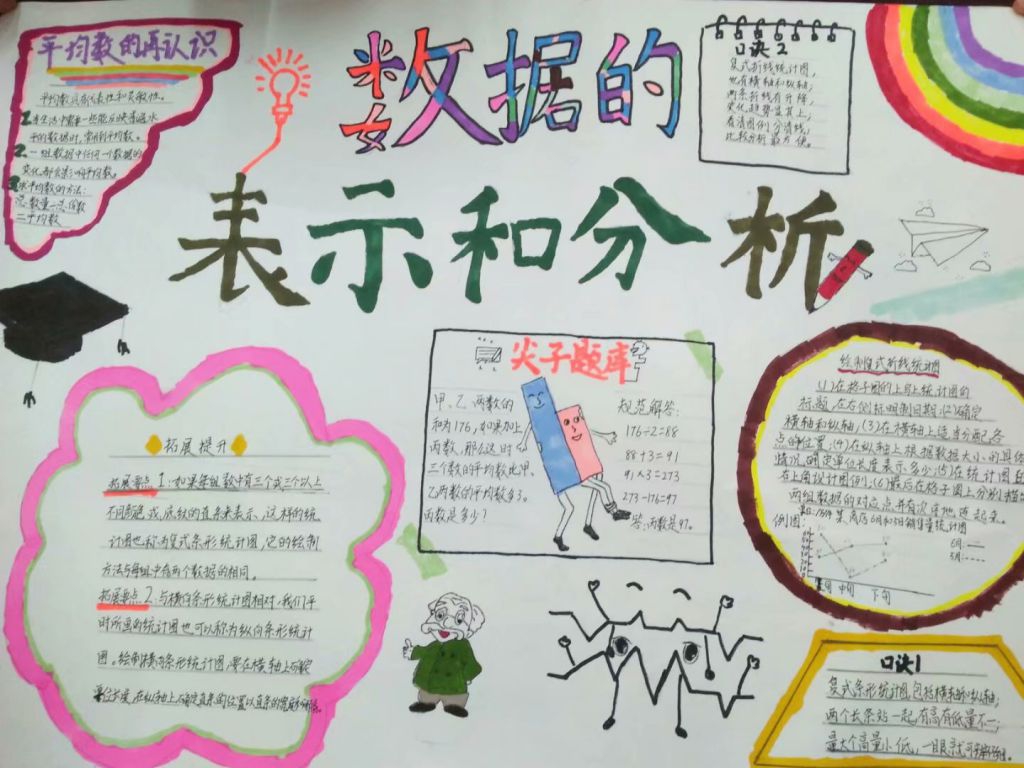 数据的
表示和分析
平均数的再认识
平均数具有代表性和灵敏性。
平的数据时，常用到平均数。
2、一组数据中任何一个数据的
变化，都会影响平均数。
3求平均数的方法：
总数量÷总份数
=平均数
口诀2
复式折线统计图，
也有横轴和纵轴；
两条折线有升降，
变化趋势显其上，
看清图例分清线，
比较分析最方便。
尖子题库
甲、乙两数的
和为176，如果加上
丙数，那么这时
三个数的平均数比甲、
乙两数的平均数多3。
丙数是多少？
规范解答：
176÷2=88
88+3=91
91×3=273
273-176=97
答：丙数是97。
拓展提升
拓展要点1：如果每组数中有三个或三个以上
计图也称为复式条形统计图，它的绘制
方法与每组中有两个数据的相同。
拓展要点2：与横向条形统计图相对，我们平
时所画的统计图也可以称为纵向条形统计
图。绘制横向条形统计图，要在横轴上确定
绘制复式折线统计图
(1)在格子图的上写上统计图的
标题，在右侧标明制图日期；(2)确定
横轴和纵轴；(3)在横轴上适当分配各
点的位置；(4)在纵轴上根据数据大小的具体
情况，确定单位长度表示多少；(5)在统计图的
右上角设计图例；(6)最后在格子图上分别描出
两组数据的对应点，并有次序地连起来。
例图：
6月：
中旬
下旬
口诀1
复式条形统计图，包括横轴和纵轴；
两个长条站一起，有高有低量不一；
量大个高量小低，一眼就可